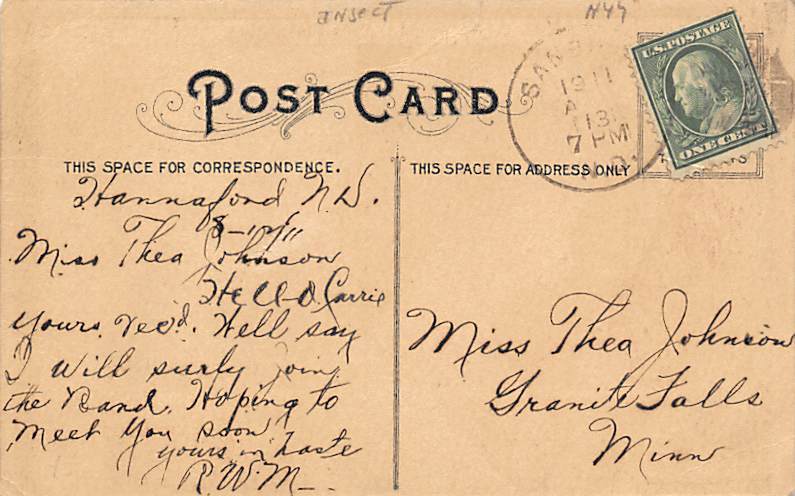 INSECT
N44
POST CARD
U.S. POSTAGE
ONE CENT
1911
A
13
7 PM
N.D.
THIS SPACE FOR CORRESPONDENCE.
THIS SPACE FOR ADDRESS ONLY
Hannaford N.D.
Miss Thea Johnson
Hello Carrie
Yours Rec'd. Well say
I Will surly join
the Band. Hoping to
Meet You soon
yours in haste
R.W.M.
Miss Thea Johnson
Granite Falls
Minn